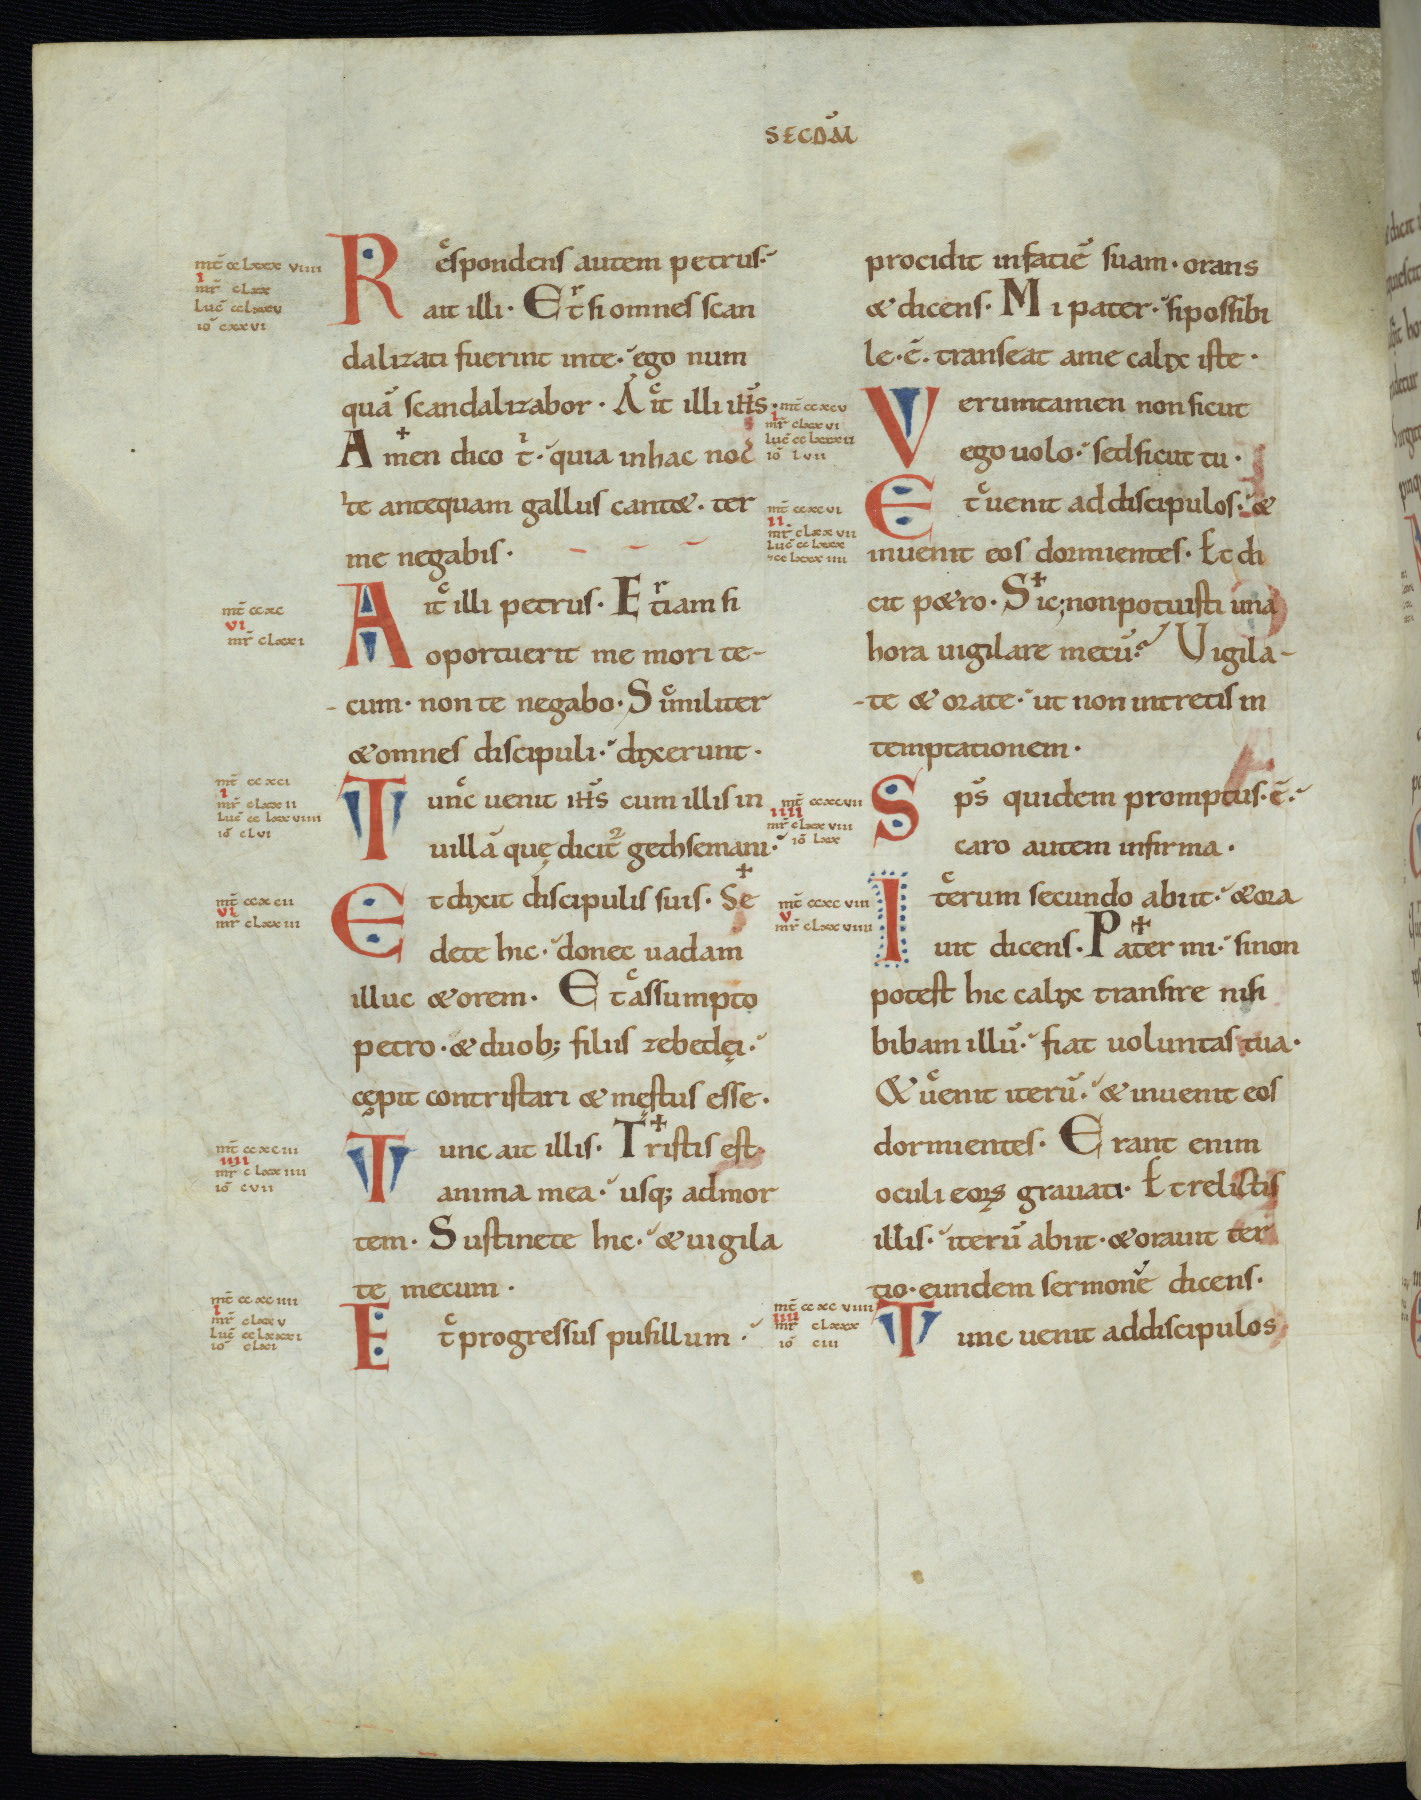 SECDM̄
mt̄ cc lxxx viiii
i
mr̄ clxx
Luc̄ cclxxv
iō cxxvi
Respondens autem petrus·
ait illi · Et si omnes scan
dalizati fuerint inte · ego num
quā scandalizabor · Ait illi ih̄s ·
Amen dico t̄ · quia inhac noc
te antequam gallus cant& · ter
me negabis ·
mt̄ cc xc
vi
mr̄ clxxi
Ait illi petrus · Etiam si
oportuerit me mori te-
-cum · non te negabo · Similiter
&omnes discipuli · dixerunt ·
mt̄ cc xci
i
mr̄ clxx ii
Luc̄ cc lxx viiii
iō clvi
Tunc uenit ih̄s cum illis in
uillā quę dicit᷑ gethsemani ·
mt̄ cc xc ii
vi
mr̄ clxx iii
Et dixit discipulis suis · Se
dete hic · donec uadam
illuc &orem · Et assumpto
petro · & duob; filiis zebedęi ·
cępit contristari & męstus esse ·
mt̄ cc xc iii
iiii
mr̄ clxx iiii
iō cvii
Tunc ait illis · Tristis est
anima mea · usq; admor
tem · Sustinete hic · &uigila
te mecum ·
mt̄ cc xc iiii
i
mr̄ clxx v
Luc̄ cc lxxxi
iō clxi
Et progressus pusillum ·
procidit infaciē suam · orans
& dicens · Mi pater · sipossibi
le · ē · transeat ame calix iste ·
mt̄ cc xc v
i
mr̄ clxx vi
Luc̄ cc lxxx ii
iō lvii
Veruntamen non sicut
ego uolo · sedsicut tu ·
mt̄ cc xc vi
ii
mr̄ clxx vii
Luc̄ cc lxxx
cc lxxx iiii
Et uenit addiscipulos · &
inuenit eos dormientes · Et di
cit p&ro · Sic; nonpotuisti una
hora uigilare mecū · Vigila-
-te & orate · ut non intretis in
temptationem ·
mt̄ cc xc vii
iiii
mr̄ clxx viii
iō lxx
Sp̄s quidem promptus · ē ·
caro autem infirma ·
mt̄ cc xc viii
v
mr̄ clxx viiii
Iterum secundo abiit · &ora
uit dicens · Pater mi · sinon
potest hic calix transire nisi
bibam illū · fiat uoluntas tua ·
& uenit iterū · & inuenit eos
dormientes · Erant enim
oculi eoꝝ grauati · Et relictis
illis · iterū abiit · &orauit ter
tio · eundem sermonē dicens ·
mt̄ cc xc viiii
iiii
mr̄ clxxx
iō ciii
Tunc uenit addiscipulos